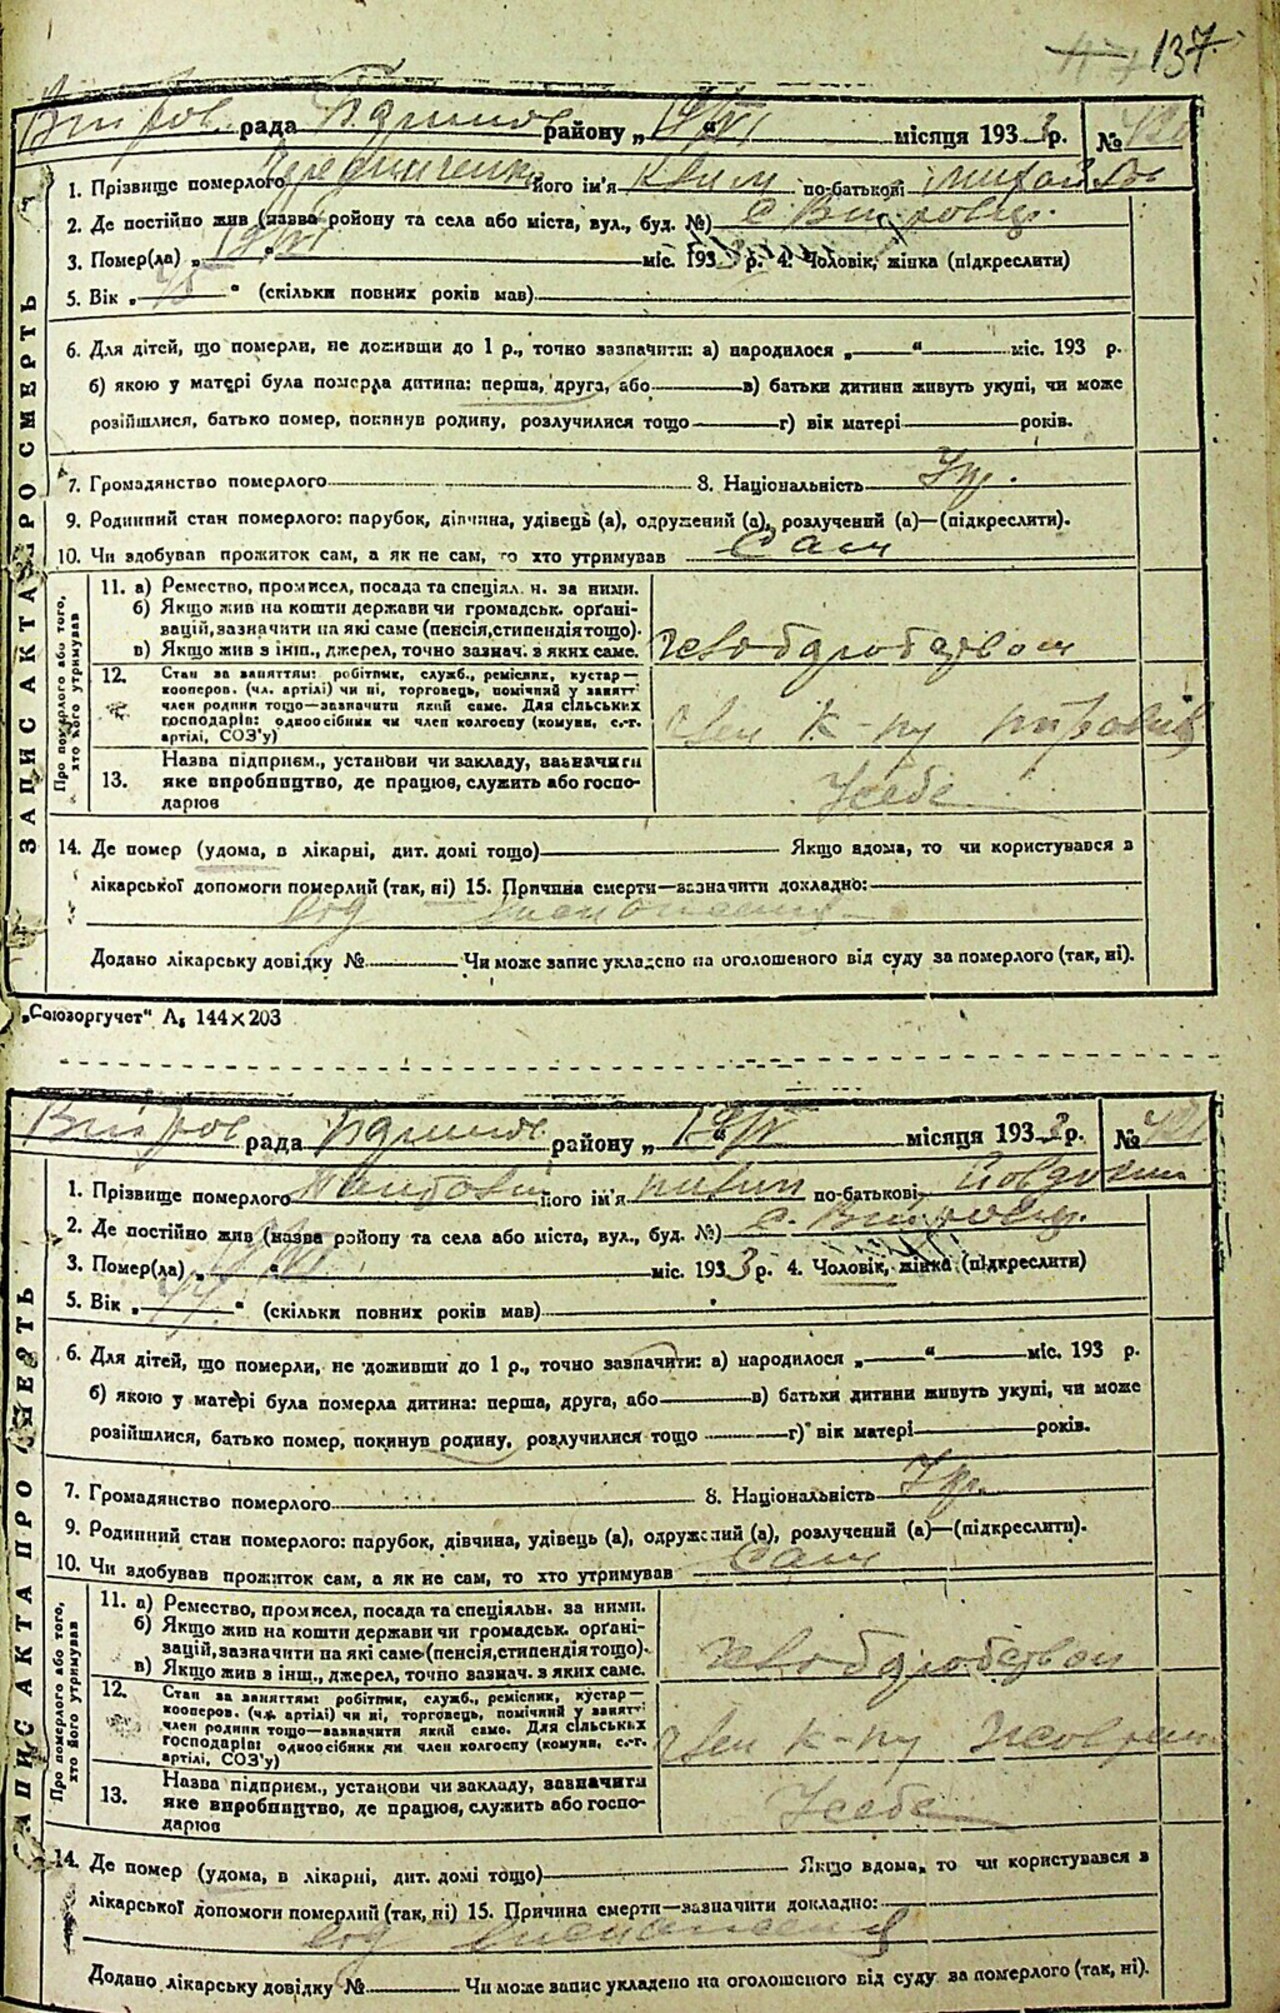 137.
рада району „ 19/VI “ місяця 1933 р. №
1. Прізвище померлого його ім'я Клим по-батькові Михайлов
2. Де постійно жив (назва району та села або міста, вул., буд. №) с.
3. Помер(ла) „ 19/VI “ міс. 1933 р. 4. Чоловік, жінка (підкреслити)
5. Вік „ 45 “ (скільки повних років мав)
6. Для дітей, що померли, не доживши до 1 р., точно зазначити: а) народилося „ “ міс. 193 р.
б) якою у матері була померла дитина: перша, друга, або в) батьки дитини живуть укупі, чи може
розійшлися, батько помер, покинув родину, розлучилися тощо г) вік матері років.
7. Громадянство померлого 8. Національність Укр.
9. Родинний стан померлого: парубок, дівчина, удівець (а), одружений (а), розлучений (а)—(підкреслити).
10. Чи здобував прожиток сам, а як не сам, то хто утримував Сам
ЗАПИС АКТА ПРО СМЕРТЬ
Про померлого або того, хто його утримував
11. а) Ремество, промисел, посада та спеціял. н. за ними.
б) Якщо жив на кошти держави чи громадськ. орґані-
зацій, зазначити на які саме (пенсія, стипендія тощо).
в) Якщо жив з інш., джерел, точно зазнач. з яких саме. Хліборобством
12. Стан за заняттям: робітник, служб., ремісник, кустар—
кооперов. (чл. артілі) чи ні, торговець, помічний у занятті
член родини тощо—зазначити який саме. Для сільських
господарів: одноосібник чи член колгоспу (комуни, с.-г.
артілі, СОЗ'у) Член к-пу
13. Назва підприєм., установи чи закладу, зазначити
яке виробництво, де працює, служить або госпо-
дарює У себе
14. Де помер (удома, в лікарні, дит. домі тощо) Якщо вдома, то чи користувався в
лікарської допомоги померлий (так, ні) 15. Причина смерти—зазначити докладно:
від
Додано лікарську довідку № Чи може запис укладено на оголошеного від суду за померлого (так, ні).
„Союзоргучет“ А₅ 144×203
рада району „ 19/VI “ місяця 1933 р. №
1. Прізвище померлого його ім'я по-батькові
2. Де постійно жив (назва району та села або міста, вул., буд. №) с.
3. Помер(ла) „ 19/VI “ міс. 1933 р. 4. Чоловік, жінка (підкреслити)
5. Вік „ 44 “ (скільки повних років мав)
6. Для дітей, що померли, не доживши до 1 р., точно зазначити: а) народилося „ “ міс. 193 р.
б) якою у матері була померла дитина: перша, друга, або в) батьки дитини живуть укупі, чи може
розійшлися, батько помер, покинув родину, розлучилися тощо г) вік матері років.
7. Громадянство померлого 8. Національність Укр.
9. Родинний стан померлого: парубок, дівчина, удівець (а), одружений (а), розлучений (а)—(підкреслити).
10. Чи здобував прожиток сам, а як не сам, то хто утримував Сам
ЗАПИС АКТА ПРО СМЕРТЬ
Про померлого або того, хто його утримував
11. а) Ремество, промисел, посада та спеціяльн. за ними.
б) Якщо жив на кошти держави чи громадськ. орґані-
зацій, зазначити на які саме (пенсія, стипендія тощо).
в) Якщо жив з інш., джерел, точно зазнач. з яких саме. Хліборобством
12. Стан за заняттям: робітник, служб., ремісник, кустар—
кооперов. (чл. артілі) чи ні, торговець, помічний у занятті
член родини тощо—зазначити який саме. Для сільських
господарів: одноосібник чи член колгоспу (комуни, с.-г.
артілі, СОЗ'у) Член к-пу
13. Назва підприєм., установи чи закладу, зазначити
яке виробництво, де працює, служить або госпо-
дарює У себе
14. Де помер (удома, в лікарні, дит. домі тощо) Якщо вдома, то чи користувався в
лікарської допомоги померлий (так, ні) 15. Причина смерти—зазначити докладно:
від
Додано лікарську довідку № Чи може запис укладено на оголошеного від суду за померлого (так, ні).